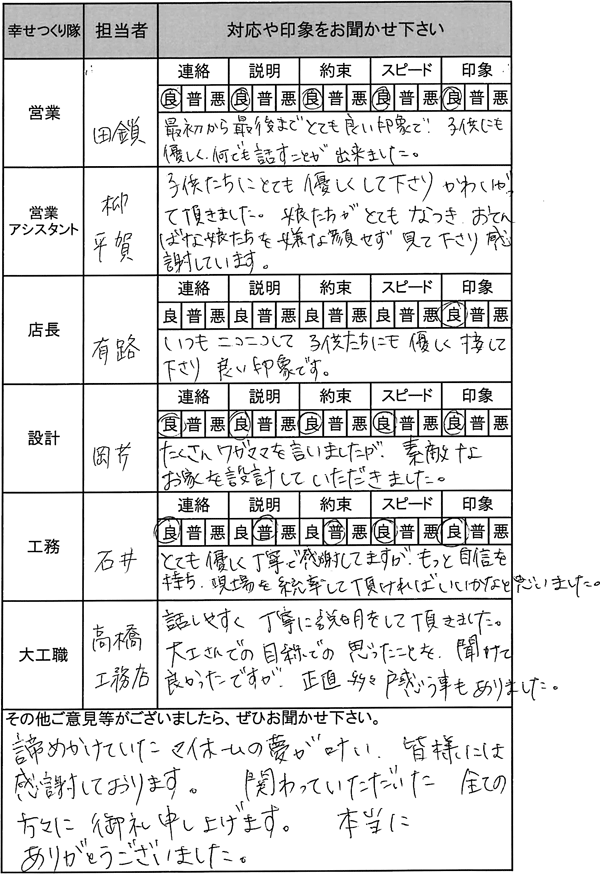 幸せつくり隊 担当者 対応や印象をお聞かせ下さい
連絡 説明 約束 スピード 印象
良 普 悪 良 普 悪 良 普 悪 良 普 悪 良 普 悪
営業 田鎖
最初から最後までとても良い印象で 子供にも
優しく、何でも話すことが出来ました。
営業
アシスタント
柳
平賀
子供たちにとても優しくして下さり かわいがっ
て頂きました。娘たちがとてもなつき、おてん
ばな娘たちを嫌な顔せず見て下さり感
謝しています。
連絡 説明 約束 スピード 印象
良 普 悪 良 普 悪 良 普 悪 良 普 悪 良 普 悪
店長 有路
いつもニコニコして 子供たちにも優しく接して
下さり 良い印象です。
連絡 説明 約束 スピード 印象
良 普 悪 良 普 悪 良 普 悪 良 普 悪 良 普 悪
設計
たくさんワガママを言いましたが、素敵な
お家を設計していただきました。
連絡 説明 約束 スピード 印象
良 普 悪 良 普 悪 良 普 悪 良 普 悪 良 普 悪
工務 石井
とても優しく丁寧で感謝してますが、もっと自信を
持ち、現場を統率して頂ければいいかなと思いました。
大工職
高橋
工務店
話しやすく 丁寧に説明をして頂きました。
大工さんでの目線での思ったことを、聞けて
良かったですが、正直 戸惑う事もありました。
その他ご意見等がございましたら、ぜひお聞かせ下さい。
諦めかけていたマイホームの夢が叶い、皆様には
感謝しております。 関わっていただいた 全ての
方々に 御礼申し上げます。 本当に
ありがとうございました。